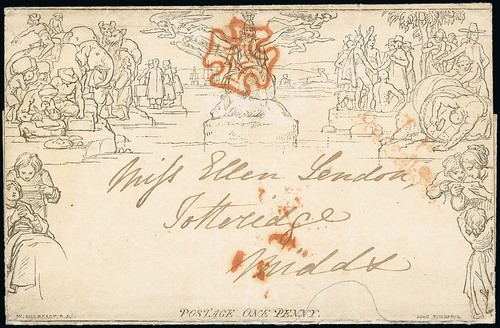 Miss Ellen London,
Totteridge
Midds
POSTAGE ONE PENNY.
W. MULREADY, R.A.
JOHN THOMPSON.